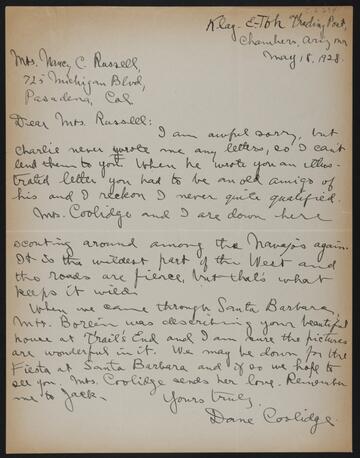 Klag-E-Toh Trading Post,
Chambers, Arizona
May 18, 1928.
Mrs. Nancy C. Russell,
725 Michigan Blvd,
Pasadena, Cal.
Dear Mrs. Russell:
I am awful sorry, but
Charlie never wrote me any letters, so I can't
lend them to you. When he wrote you an illus-
trated letter you had to be an old amigo of
his and I reckon I never quite qualified.
Mrs. Coolidge and I are down here
scouting around among the Navajos again.
It is the wildest part of the West and
the roads are fierce, but that's what
keeps it wild.
When we came through Santa Barbara,
Mrs. Borein was describing your beautiful
house at Trail's End and I am sure the pictures
are wonderful in it. We may be down for the
Fiesta at Santa Barbara and if so we hope to
see you. Mrs. Coolidge sends her love. Remember
me to Jack.
Yours truly,
Dane Coolidge.